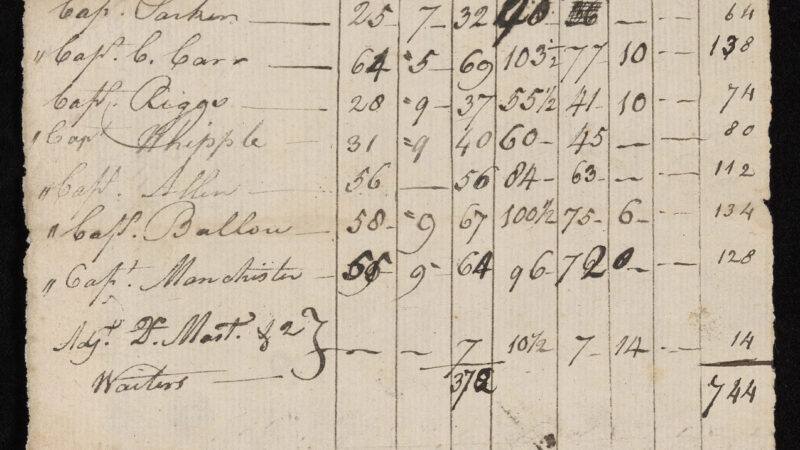 Capt. Parker — 25 - 7 - 32 48 - 64
" Capt. C. Carr — 64 " 5 - 69 103½ 77 - 10 - - 138
Capt. Riggs — 28 " 9 - 37 55½ 41 - 10 - - 74
" Capt Whipple — 31 " 9 40 60 - 45 - - - - 80
" Capt. Allen — 56 — 56 84 - 63 - - - - 112
" Capt. Ballou — 58 - " 9 67 100½ 75 - 6 - - - 134
" Capt. Manchester — 55 - 9 - 64 96 - 72 0 - - - 128
Adjt. Qr. Mastr. & 2 } — — 7 10½ 7 - 14 - - - 14
Waiters — 372 744